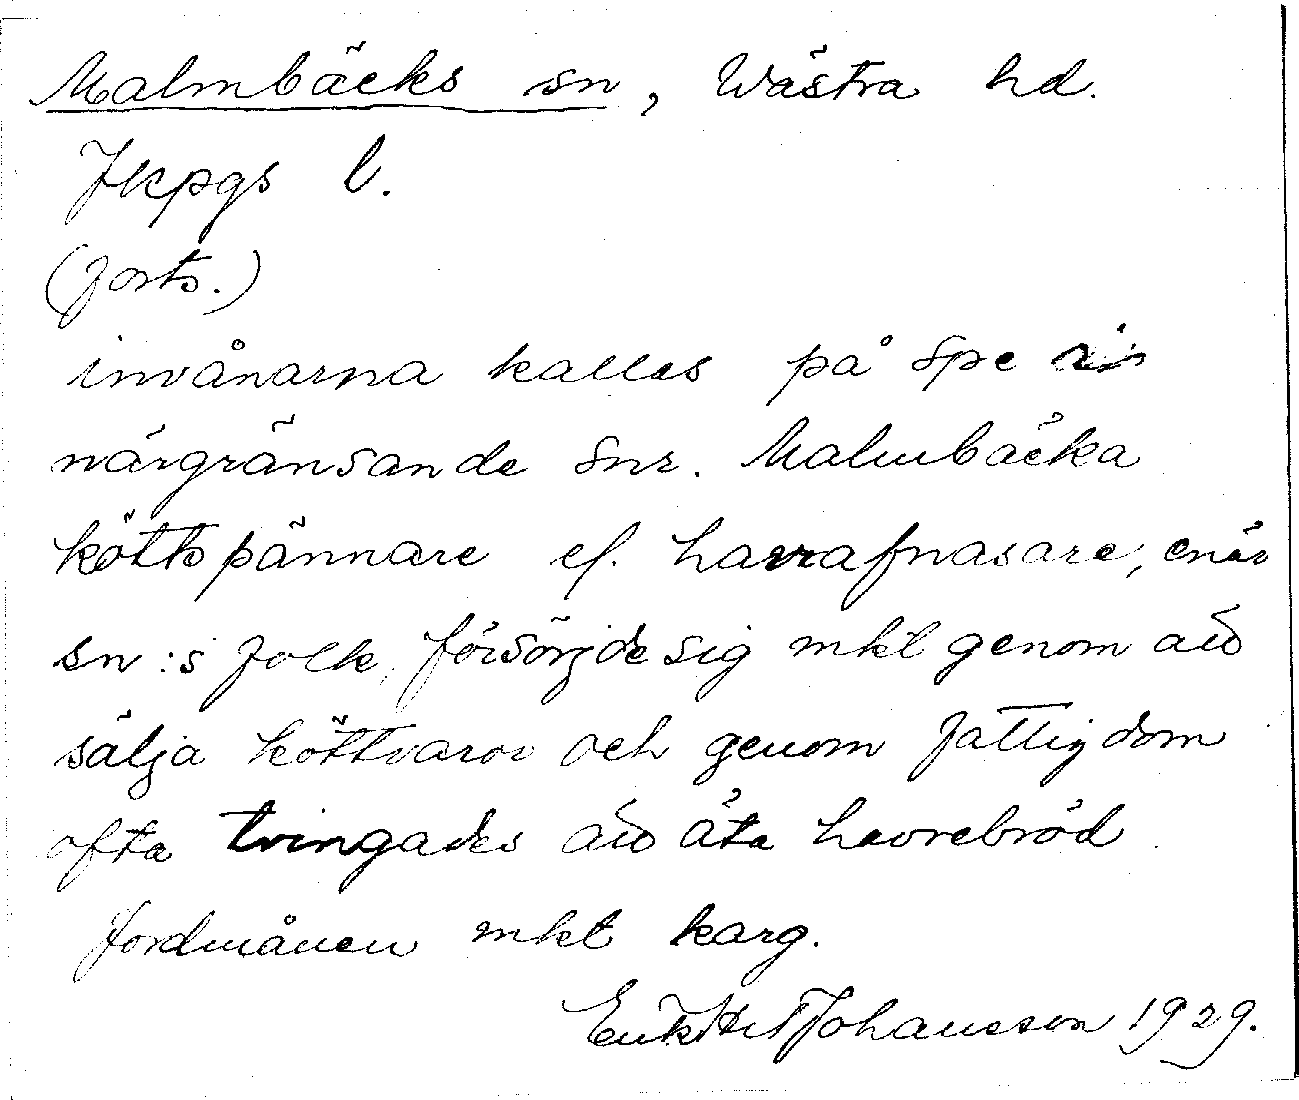 Malmbäcks sn, Wästra hd.
Jkpgs l.
(forts.)
invånarna kallas på spe i
närgränsande snr. Malmbäcka
köttspännare el. havrafnasare, enär
sn:s folk, försörjde sig mkt genom att
sälja köttvaror och genom fattigdom
ofta tvingades att äta havrebröd.
Jordmånen mkt karg.
Johansson 1929.